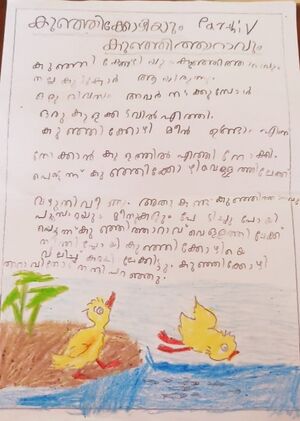 കുഞ്ഞിക്കോഴിയും Parthiv
കുഞ്ഞിത്താറാവും
കുഞ്ഞി കോഴിയും കുഞ്ഞിത്താറാവും
നല്ല കൂട്ടുകാർ ആയിരുന്നു.
ഒരു ദിവസം അവർ നടക്കുമ്പോൾ
ഒരു കുളക്കടവിൽ എത്തി.
കുഞ്ഞിക്കോഴി മീൻ ഉണ്ടോ എന്ന്
നോക്കാൻ കുളത്തിൽ എത്തി നോക്കി.
പെട്ടന്ന് കുഞ്ഞിക്കോഴി വെള്ളത്തിലേക്ക്
വഴുതി വീണു. അതു കണ്ട് കുഞ്ഞിത്താറാവും
മീനുകളും പേടിച്ചു പോയി
പെട്ടന്ന് കുഞ്ഞിത്താറാവ് വെള്ളത്തിലേക്ക്
നീന്തിപ്പോയി കുഞ്ഞിക്കോഴിയെ
വലിച്ച് കരയിലേക്കിട്ടു. കുഞ്ഞിക്കോഴി
താറാവിനോട് നന്ദി പറഞ്ഞു.